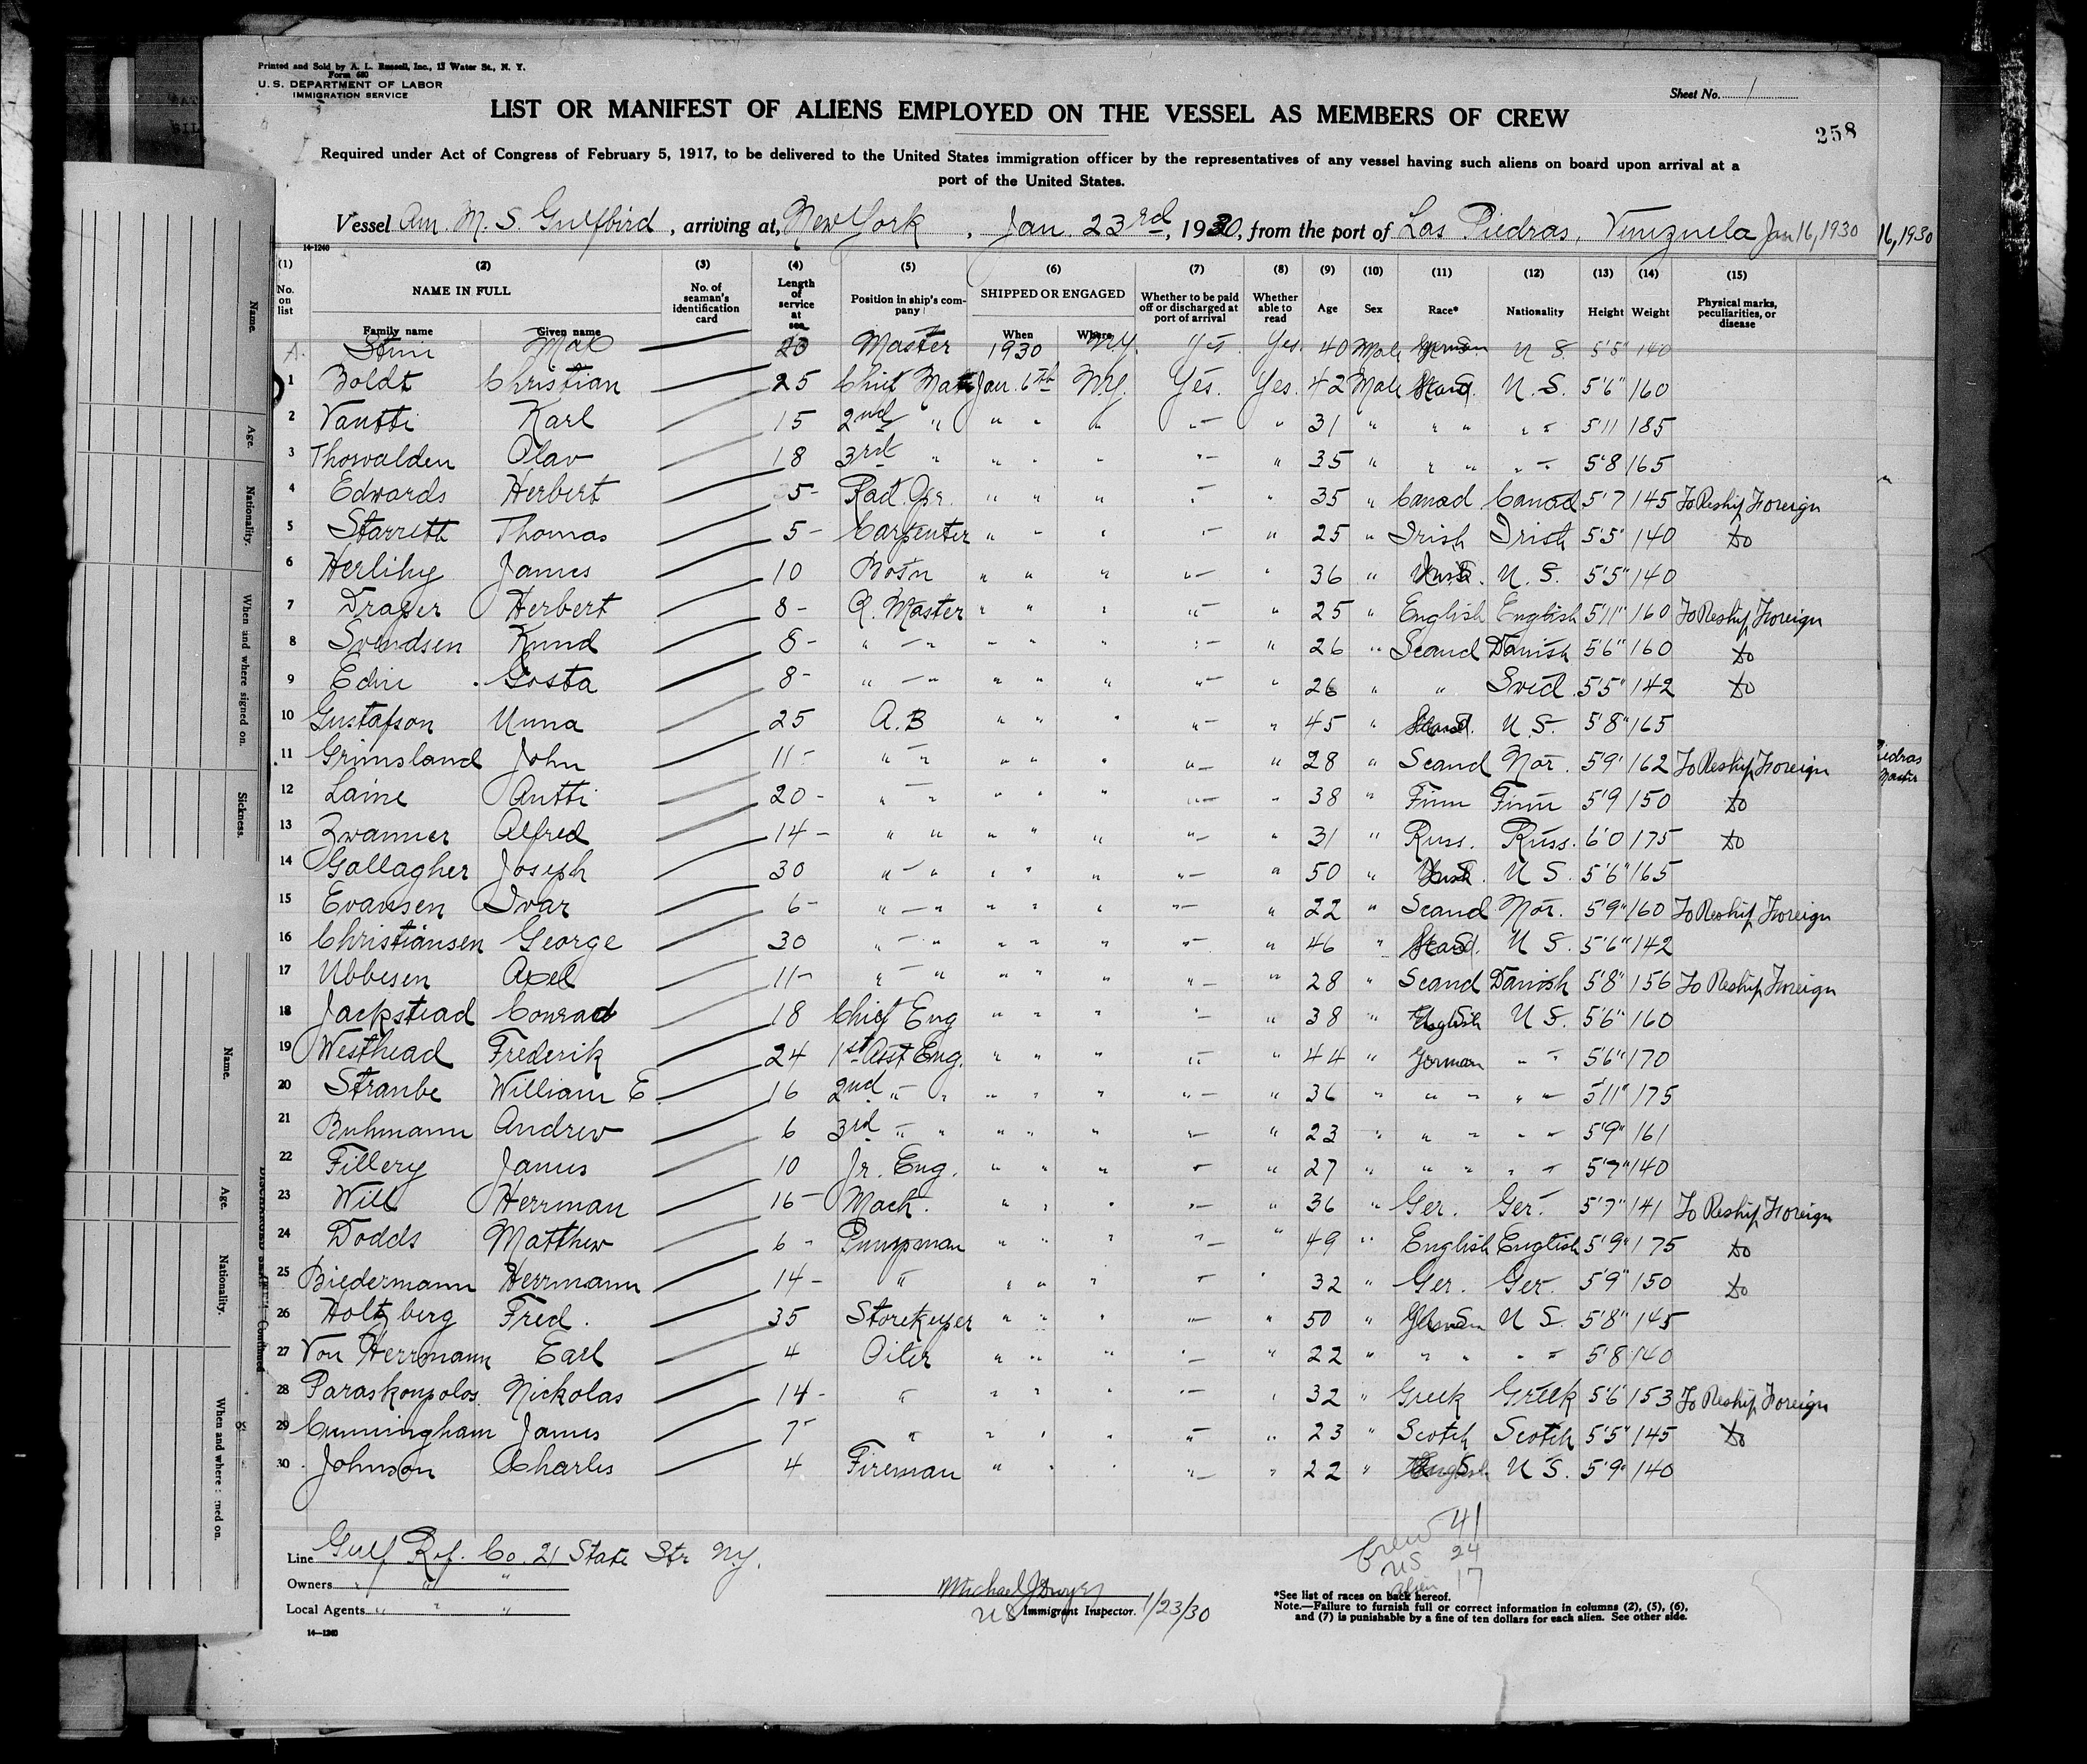 Printed and Sold by A. L. Russell, Inc., 13 Water St., N. Y.
Form 680
U. S. DEPARTMENT OF LABOR
IMMIGRATION SERVICE
Sheet No. 1
LIST OR MANIFEST OF ALIENS EMPLOYED ON THE VESSEL AS MEMBERS OF CREW
258
Required under Act of Congress of February 5, 1917, to be delivered to the United States immigration officer by the representatives of any vessel having such aliens on board upon arrival at a
port of the United States.
Vessel Am. M. S. Gulfbird, arriving at, New York, Jan 23rd, 1930, from the port of Las Piedras, Venuzuela Jan 16, 1930
16, 1930
14-1240
(1) (2) (3) (4) (5) (6) (7) (8) (9) (10) (11) (12) (13) (14) (15)
No. on list NAME IN FULL Family name Given name No. of seaman's identification card Length of service at sea Position in ship's company SHIPPED OR ENGAGED When Where Whether to be paid off or discharged at port of arrival Whether able to read Age Sex Race* Nationality Height Weight Physical marks, peculiarities, or disease
A. Max 20 Master 1930 N.Y. Yes Yes 40 Male U S 5'5" 140
1 Boldt Christian 25 Chief Mate Jan. 6th N.Y. Yes. Yes. 42 Male U. S. 5'6" 160
2 Vantti Karl 15 2nd " " " " " " 31 " " " " " 5'11 185
3 Thorvalden Olav 18 3rd " " " " " " 35 " " " " " 5'8 165
4 Edwards Herbert 5- Rad. Opr. " " " " " 35 " Canad Canad 5'7 145 To Reship Foreign
5 Starrett Thomas 5- Carpenter " " " " " 25 " Irish Irish 5'5" 140 do
6 Herlihy James 10 Bosn " " " " " 36 " U. S. 5'5" 140
7 Draper Herbert 8- Q. Master " " " " " 25 " English English 5'11" 160 To Reship Foreign
8 Svendsen Knud 8- " " " " " " " 26 " Scand Danish 5'6" 160 do
9 Edin Gosta 8- " " " " " " " 26 " " Swed. 5'5" 142 do
10 Gustafson Unna 25 A.B " " " " " 45 " U. S. 5'8" 165
11 Grimsland John 11- " " " " " " " 28 " Scand Nor. 5'9" 162 To Reship Foreign
12 Laine Antti 20- " " " " " " " 38 " Finn Finn 5'9 150 do
13 Zwanner Alfred 14- " " " " " " " 31 " Russ. Russ. 6'0 175 do
14 Gallagher Joseph 30 " " " " " " " 50 " U S. 5'6" 165
15 Evansen Ivar 6- " " " " " " " 22 " Scand Nor. 5'9" 160 To Reship Foreign
16 Christiansen George 30 " " " " " " " 46 " U S. 5'6" 142
17 Ubbesen Axel 11- " " " " " " " 28 " Scand Danish 5'8" 156 To Reship Foreign
18 Jackstead Conrad 18 Chief Eng " " " " " 38 " U S. 5'6" 160
19 Westhead Frederik 24 1st Asst Eng. " " " " " 44 " German " " 5'6" 170
20 Straube William E. 16 2nd " " " " " " " 36 " " " " " 5'11" 175
21 Buhmann Andrew 6 3rd " " " " " " " 23 " " " " " 5'9" 161
22 Fillery James 10 Jr. Eng. " " " " " 27 " " " " " 5'7" 140
23 Will Herrman 16- Mach. " " " " " 36 " Ger. Ger. 5'7" 141 To Reship Foreign
24 Dodds Matthew 6- Pumpman " " " " " 49 " English English 5'9" 175 do
25 Biedermann Herrmann 14- " " " " " " 32 " Ger. Ger. 5'9" 150 do
26 Holtzberg Fred. 35 Storekeeper " " " " " 50 " U S. 5'8" 145
27 Von Herrmann Earl 4 Oiler " " " " " 22 " " " " " 5'8 140
28 Paraskonpolos Nickolas 14- " " " " " " 32 " Greek Greek 5'6" 153 To Reship Foreign
29 Cunningham James 7- " " " " " " 23 " Scotch Scotch 5'5" 145 do
30 Johnson Charles 4 Fireman " " " " " 22 " U S. 5'9" 140
Crew 41
US 24
Alien 17
Line Gulf Ref. Co. 21 State Str N.Y.
Owners " " "
Local Agents " " "
14-1240
Michael J Dwyer
US Immigrant Inspector. 1/23/30
*See list of races on back hereof.
Note.—Failure to furnish full or correct information in columns (2), (5), (6),
and (7) is punishable by a fine of ten dollars for each alien. See other side.
Name.
Age.
Nationality.
When and where signed on.
Sickness.
Name.
Age.
Nationality.
When and where
Piedras
Master